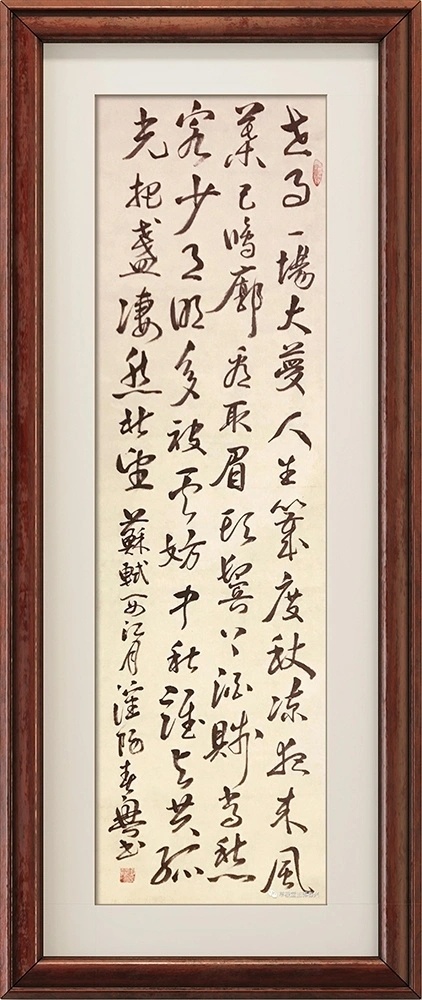 世事一場大夢人生幾度秋凉夜来風
葉已鳴廊看取眉頭鬢上酒賤常愁
客少月明多被云妨中秋誰与共孤
光把盞淒然北望 蘇軾西江月 春興书